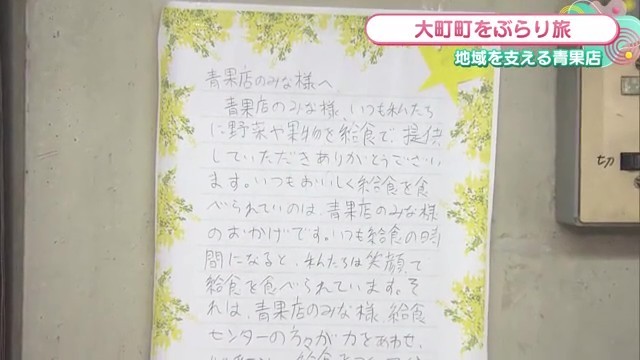 大町町をぶらり旅
地域を支える青果店
青果店のみな様へ
青果店のみな様、いつも私たち
に野菜や果物を給食で、提供
していただきありがとうござい
ます。いつもおいしく給食を食
べられているのは、青果店のみな様
のおかげです。いつも給食の時
間になると、私たちは笑顔で
給食を食べられています。そ
れは、青果店のみな様、給食
センターの方々が力をあわせ、
切